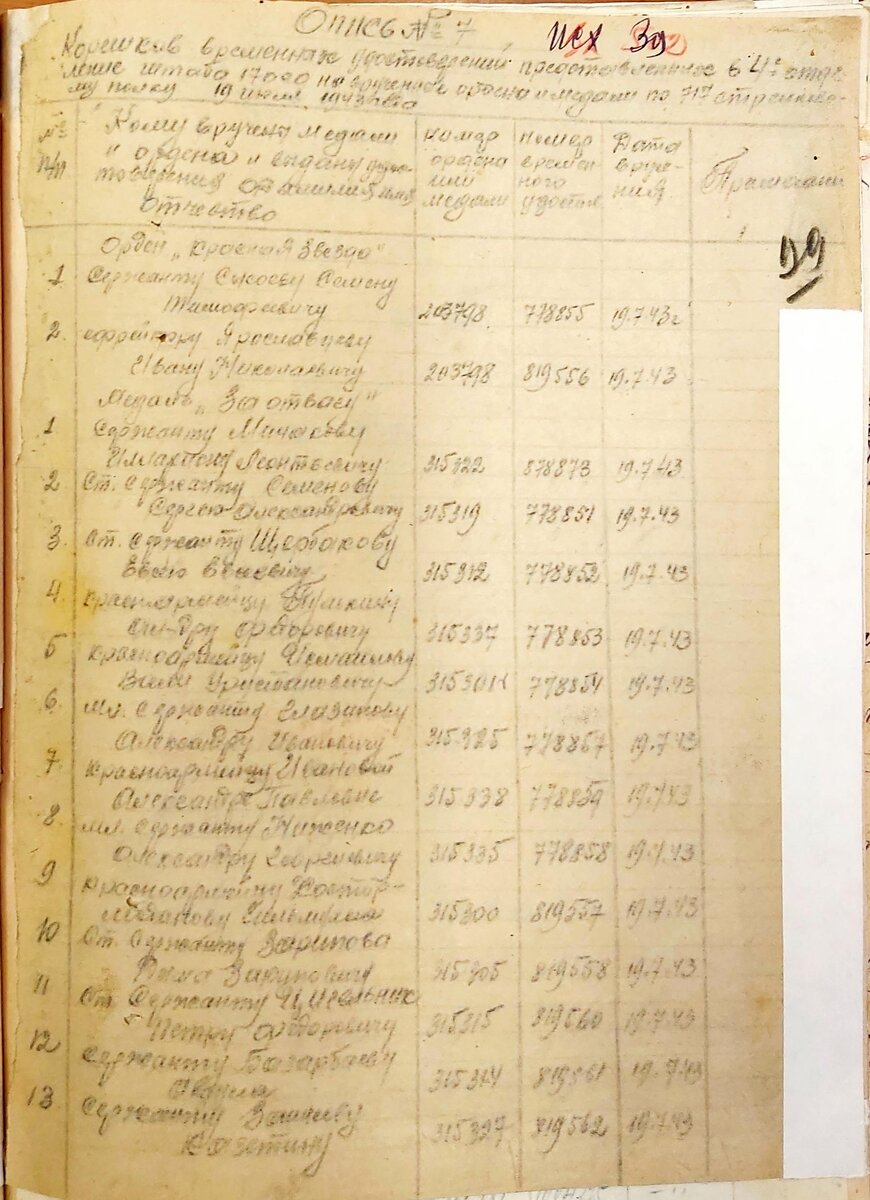 Опись № 7
исх 39
Корешков временных удостоверений, представленных в 4й отде-
ление штаба 170 сд на врученные ордена и медали по 717 стрелково-
му полку 19 июля 1943 года
№№ п/п
Кому вручены медали
и ордена и выданы удос-
товерения фамилия имя
Отчество
Номер ордена или медали
Номер времен-ного удостов.
Дата вруче-ния
Примечание
99
Орден „Красная Звезда"
1 Сержанту Сысоеву Семену
Тимофеевичу 203798 778855 19.7.43г
2. ефрейтору Ярославцеву
Ивану Николаевичу 203798 819556 19.7.43
Медаль „За отвагу"
1 Сержанту
Леонтьевичу 315322 878873 19.7.43
2 Ст. Сержанту Семенову
Сергею Александровичу 315319 778851 19.7.43
3. Ст. Сержанту Щербакову
315312 778852 19.7.43
4. Красноармейцу
Федоровичу 315337 778853 19.7.43
5 Красноармейцу
778854 19.7.43
6. Мл. Сержанту
Александру Ивановичу 315325 778857 19.7.43
7 Красноармейцу Ивановой
Александре Павловне 315338 778859 19.7.43
8 Мл. Сержанту
Александру Георгиевичу 315335 778858 19.7.43
9 Красноармейцу
315300 819557 19.7.43
10 Ст. Сержанту Зарипова
315305 819558 19.7.43
11 Ст Сержанту
Петру Федоровичу 315315 819560 19.7.43
12 Сержанту Базарбаеву
315314 819561 19.7.43
13 Сержанту
315327 819562 19.7.43